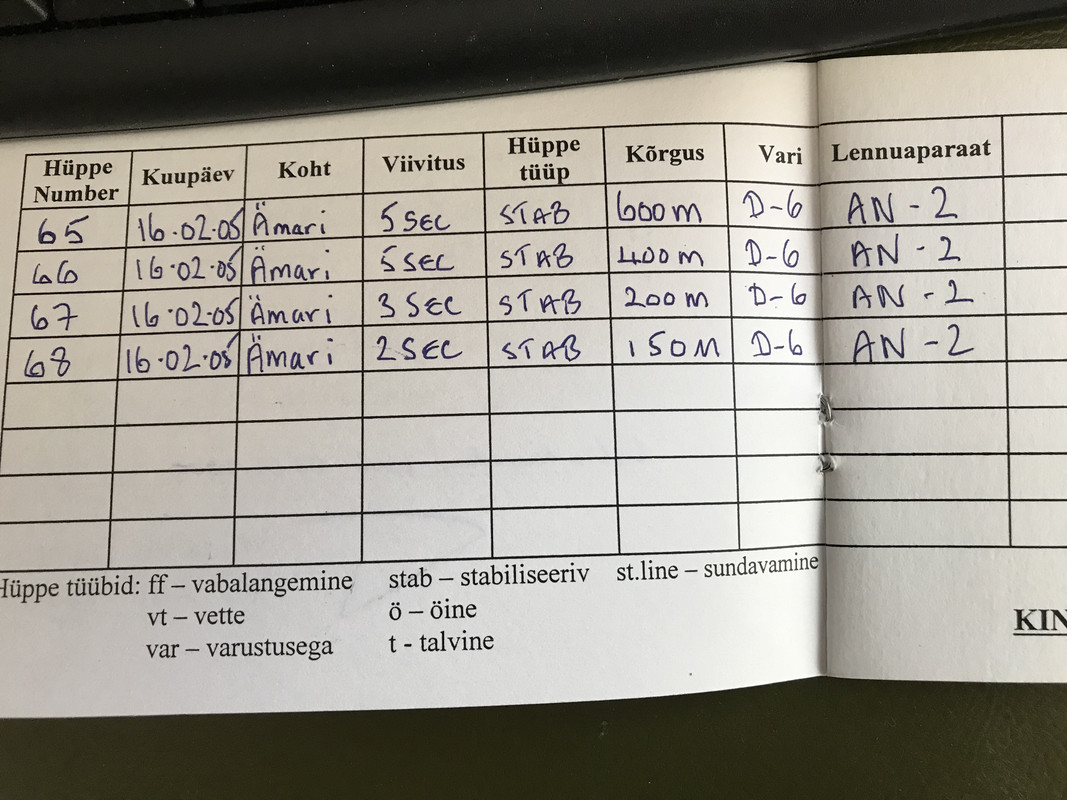 Hüppe Number Kuupäev Koht Viivitus Hüppe tüüp Kõrgus Vari Lennuaparaat
65 16.02.05 Ämari 5 SEC STAB 600 m D-6 AN - 2
66 16.02.05 Ämari 5 SEC STAB 400 m D-6 AN - 2
67 16.02.05 Ämari 3 SEC STAB 200 m D-6 AN - 2
68 16.02.05 Ämari 2 SEC STAB 150 M D-6 AN - 2
Hüppe tüübid: ff – vabalangemine stab – stabiliseeriv st.line – sundavamine
vt – vette ö – öine
var – varustusega t - talvine
KIN